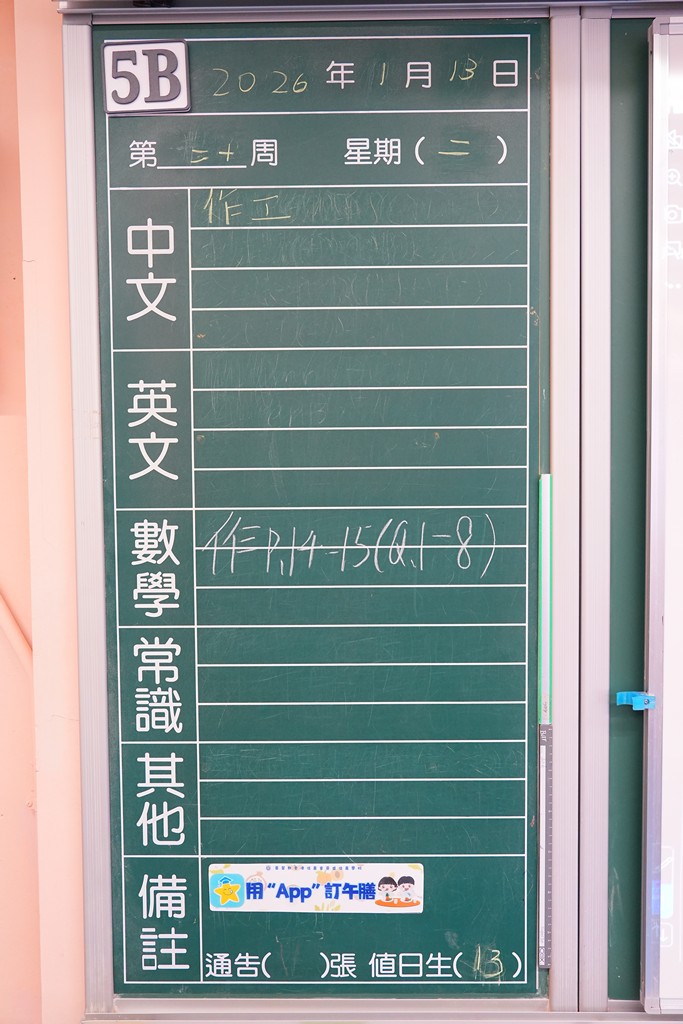 5B 2026年1月13日
第二十周 星期(二)
中文 作工
英文
數學 作P.14-15(Q.1-8)
常識
其他
備註
用“App”訂午膳
通告( )張 值日生(13)